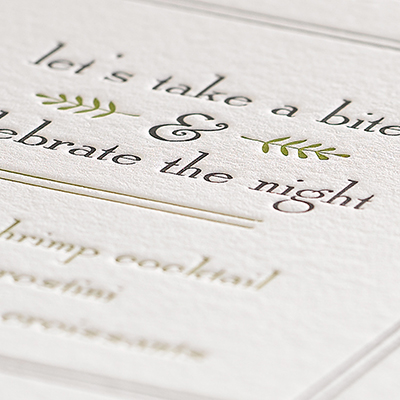 let's take a bite
&
lebrate the night
hrimp cocktail
rostini
croissants